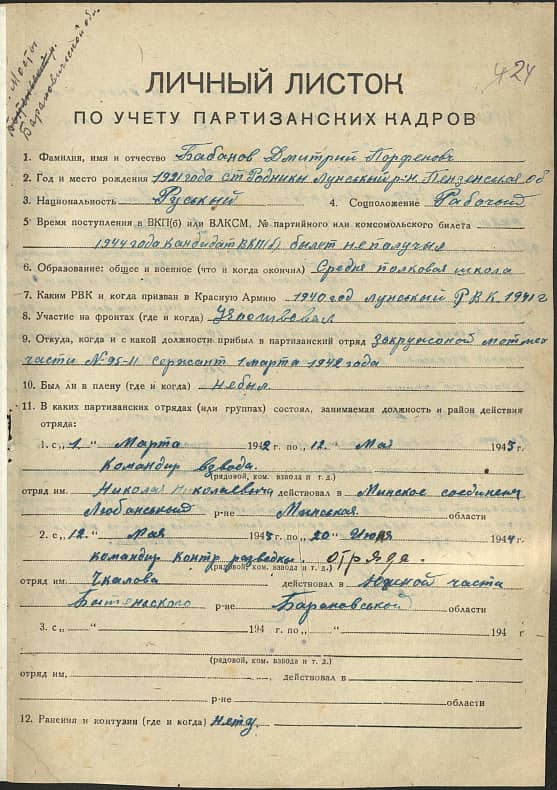 г. Мосты
Барановической обл.
424
ЛИЧНЫЙ ЛИСТОК
ПО УЧЕТУ ПАРТИЗАНСКИХ КАДРОВ
1. Фамилия, имя и отчество Бабанов Дмитрий Порфенович
2. Год и место рождения 1921 года ст. Родники Лунський р-н. Пензенская об
3. Национальность Руський 4. Соцположение Рабочий
5 Время поступления в ВКП(б) или ВЛКСМ, № партийного или комсомольского билета
1944 года кандидат ВКП(б) билет неполучил
6. Образование: общее и военное (что и когда окончил) Средня полковая школа
7. Каким РВК и когда призван в Красную Армию 1940 год Лунский РВК 1940 г
8. Участие на фронтах (где и когда)
9. Откуда, когда и с какой должности прибыл в партизанский отряд
части № 95-11 сержант 1 марта 1942 года
10. Был ли в плену (где и когда) небыл
11. В каких партизанских отрядах (или группах) состоял, занимаемая должность и район действия
отряда:
1. с „1" Марта 1942 г. по „12" Мая 1943 г.
Командир взвода.
(рядовой, ком. взвода и т. д.)
отряд им. Николая Николаевича действовал в Минское соединен
Любанський р-не Минськая области
2. с „12" Мая 1943 г. по „20" Июля 1944 г.
командир контр разведки. отряда.
(рядовой, ком. взвода и т. д.)
отряд им. Чкалова действовал в Южной части
Бытеньского р-не Барановськой области
3. с „ " 194 г. по „ " 194 г
(рядовой, ком. взвода и т. д.)
отряд им. действовал в
р-не области
12. Ранения и контузии (где и когда) нету.